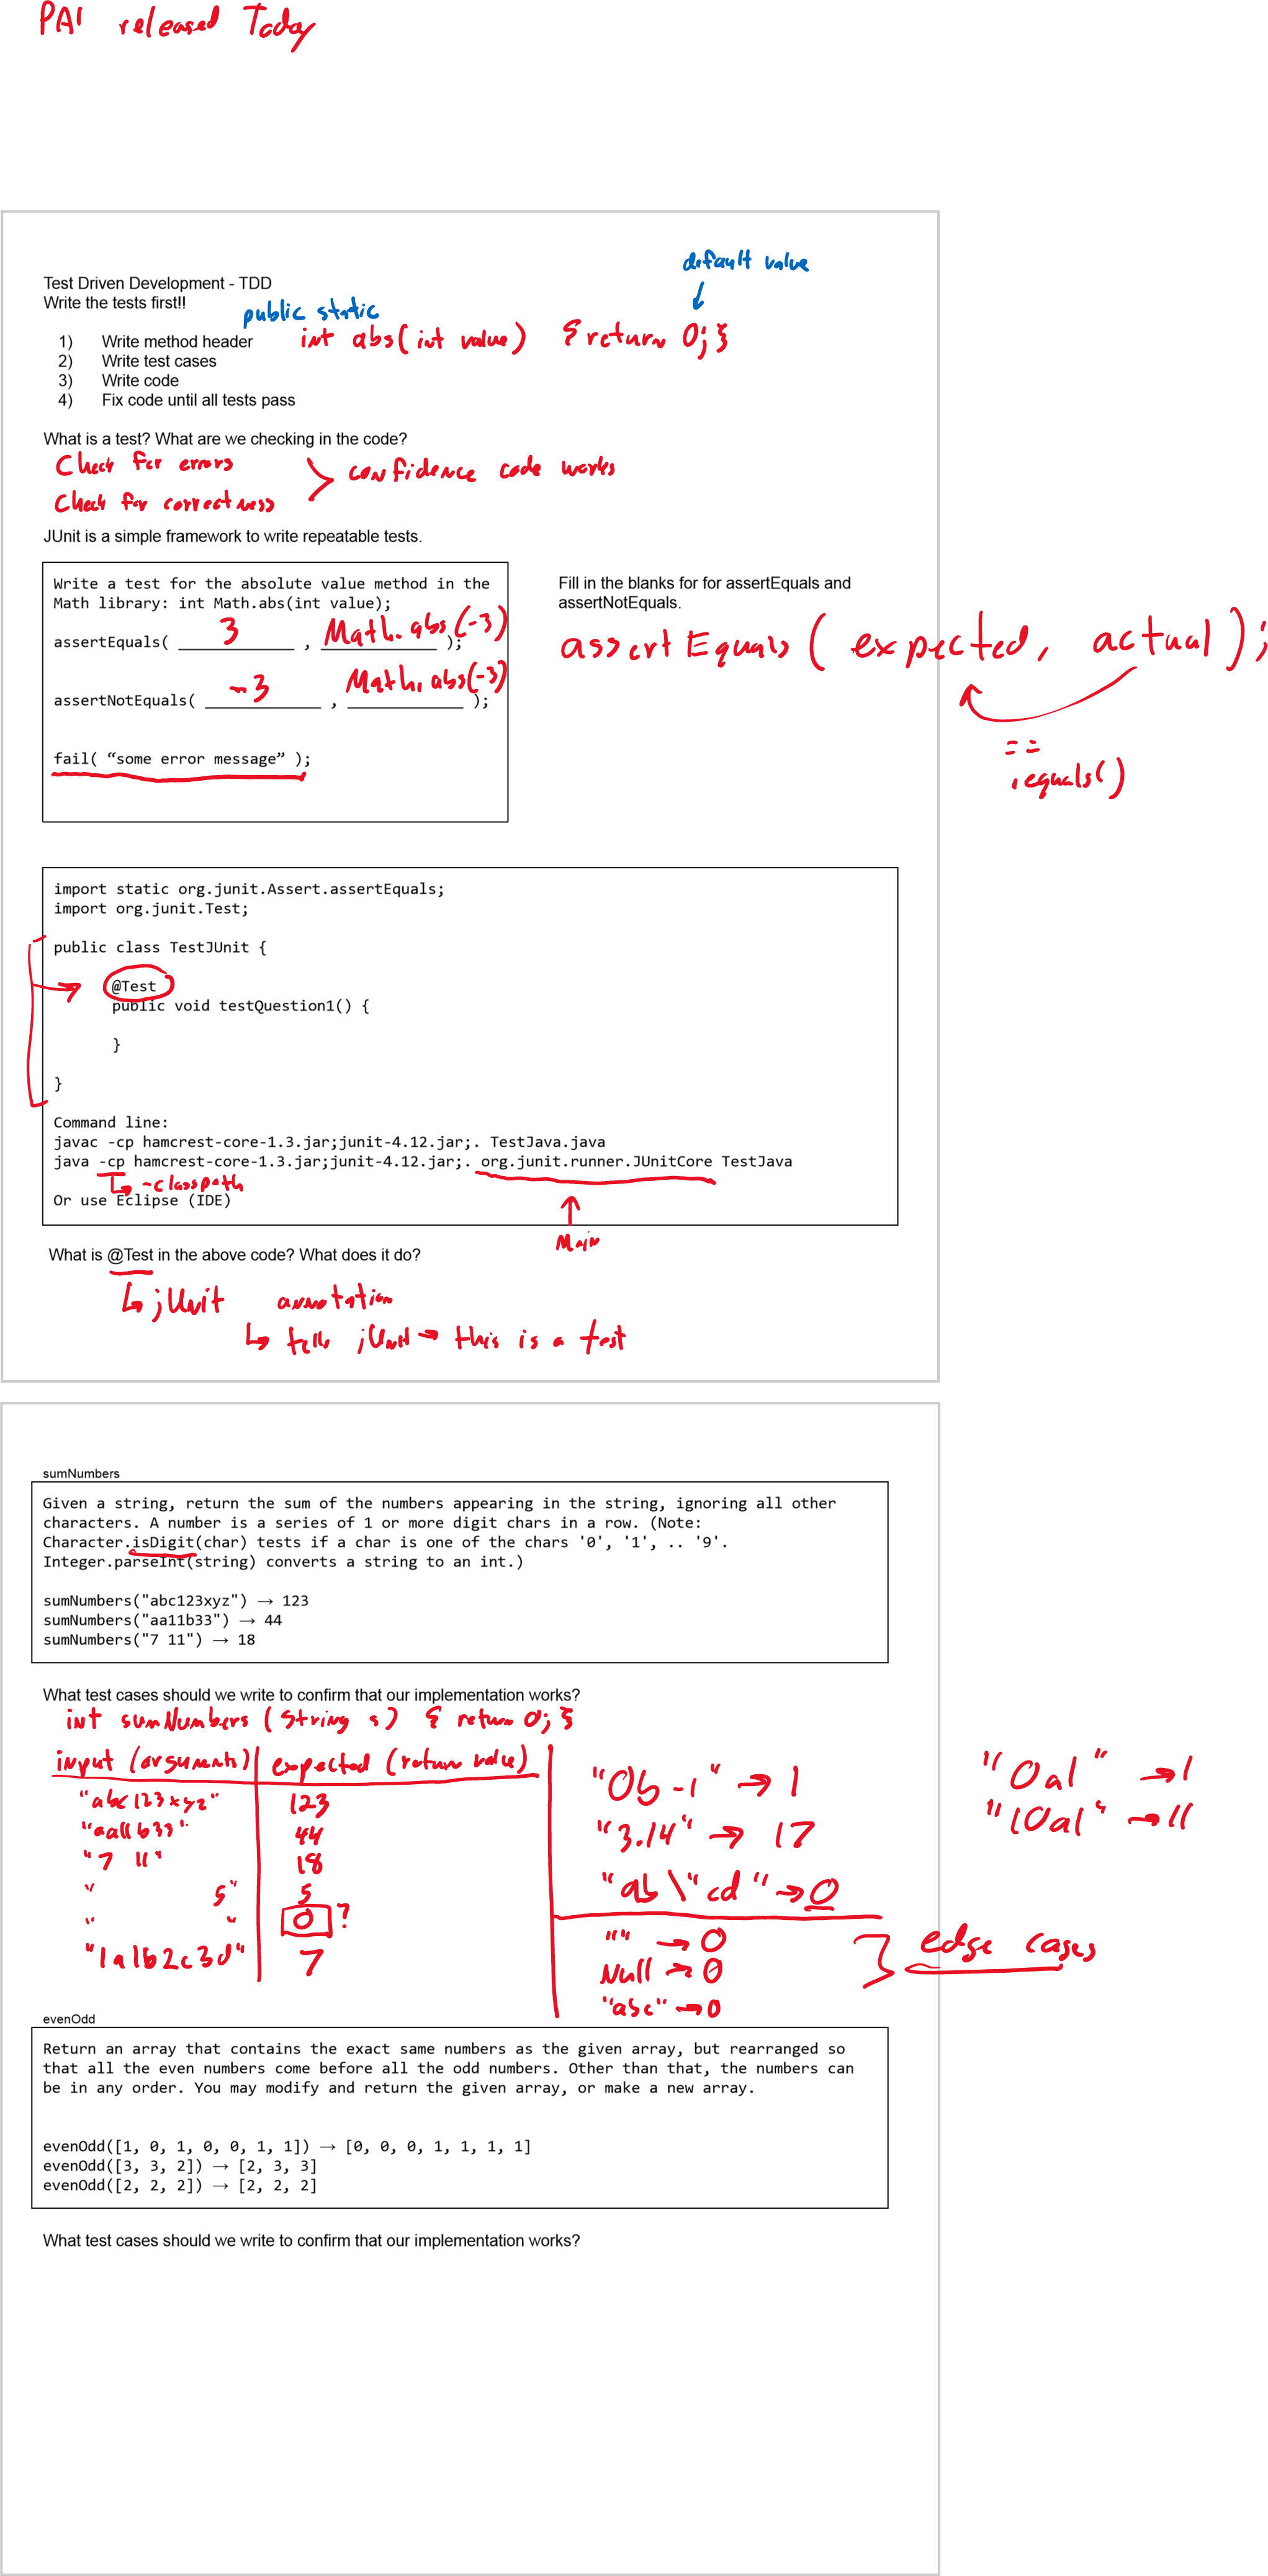 PA1 released Today
default value
Test Driven Development - TDD
Write the tests first!!
public static
1) Write method header int abs(int value) {return 0;}
2) Write test cases
3) Write code
4) Fix code until all tests pass
What is a test? What are we checking in the code?
Check for errors
Check for correctness
> confidence code works
JUnit is a simple framework to write repeatable tests.
Write a test for the absolute value method in the
Math library: int Math.abs(int value);
assertEquals( 3 , Math.abs(-3) );
assertNotEquals( -3 , Math.abs(-3) );
fail( “some error message” );
Fill in the blanks for for assertEquals and
assertNotEquals.
assertEquals( expected, actual);
==
.equals()
import static org.junit.Assert.assertEquals;
import org.junit.Test;
public class TestJUnit {
@Test
public void testQuestion1() {
}
}
Command line:
javac -cp hamcrest-core-1.3.jar;junit-4.12.jar;. TestJava.java
java -cp hamcrest-core-1.3.jar;junit-4.12.jar;. org.junit.runner.JUnitCore TestJava
-classpath
Or use Eclipse (IDE)
Main
What is @Test in the above code? What does it do?
↳ jUnit annotation
↳ tells jUnit → this is a test
sumNumbers
Given a string, return the sum of the numbers appearing in the string, ignoring all other
characters. A number is a series of 1 or more digit chars in a row. (Note:
Character.isDigit(char) tests if a char is one of the chars '0', '1', .. '9'.
Integer.parseInt(string) converts a string to an int.)
sumNumbers("abc123xyz") → 123
sumNumbers("aa11b33") → 44
sumNumbers("7 11") → 18
What test cases should we write to confirm that our implementation works?
int sumNumbers (String s) { return 0; }
input (arguments) expected (return value)
"abc123xyz" 123
"aa11b33" 44
"7 11" 18
" 5" 5
" " 0 ?
"1a1b2c3d" 7
"0b-1" → 1
"3.14" → 17
"ab\"cd" → 0
"" → 0
Null → 0
"abc" → 0
} edge cases
"0a1" → 1
"10a1" → 11
evenOdd
Return an array that contains the exact same numbers as the given array, but rearranged so
that all the even numbers come before all the odd numbers. Other than that, the numbers can
be in any order. You may modify and return the given array, or make a new array.
evenOdd([1, 0, 1, 0, 0, 1, 1]) → [0, 0, 0, 1, 1, 1, 1]
evenOdd([3, 3, 2]) → [2, 3, 3]
evenOdd([2, 2, 2]) → [2, 2, 2]
What test cases should we write to confirm that our implementation works?